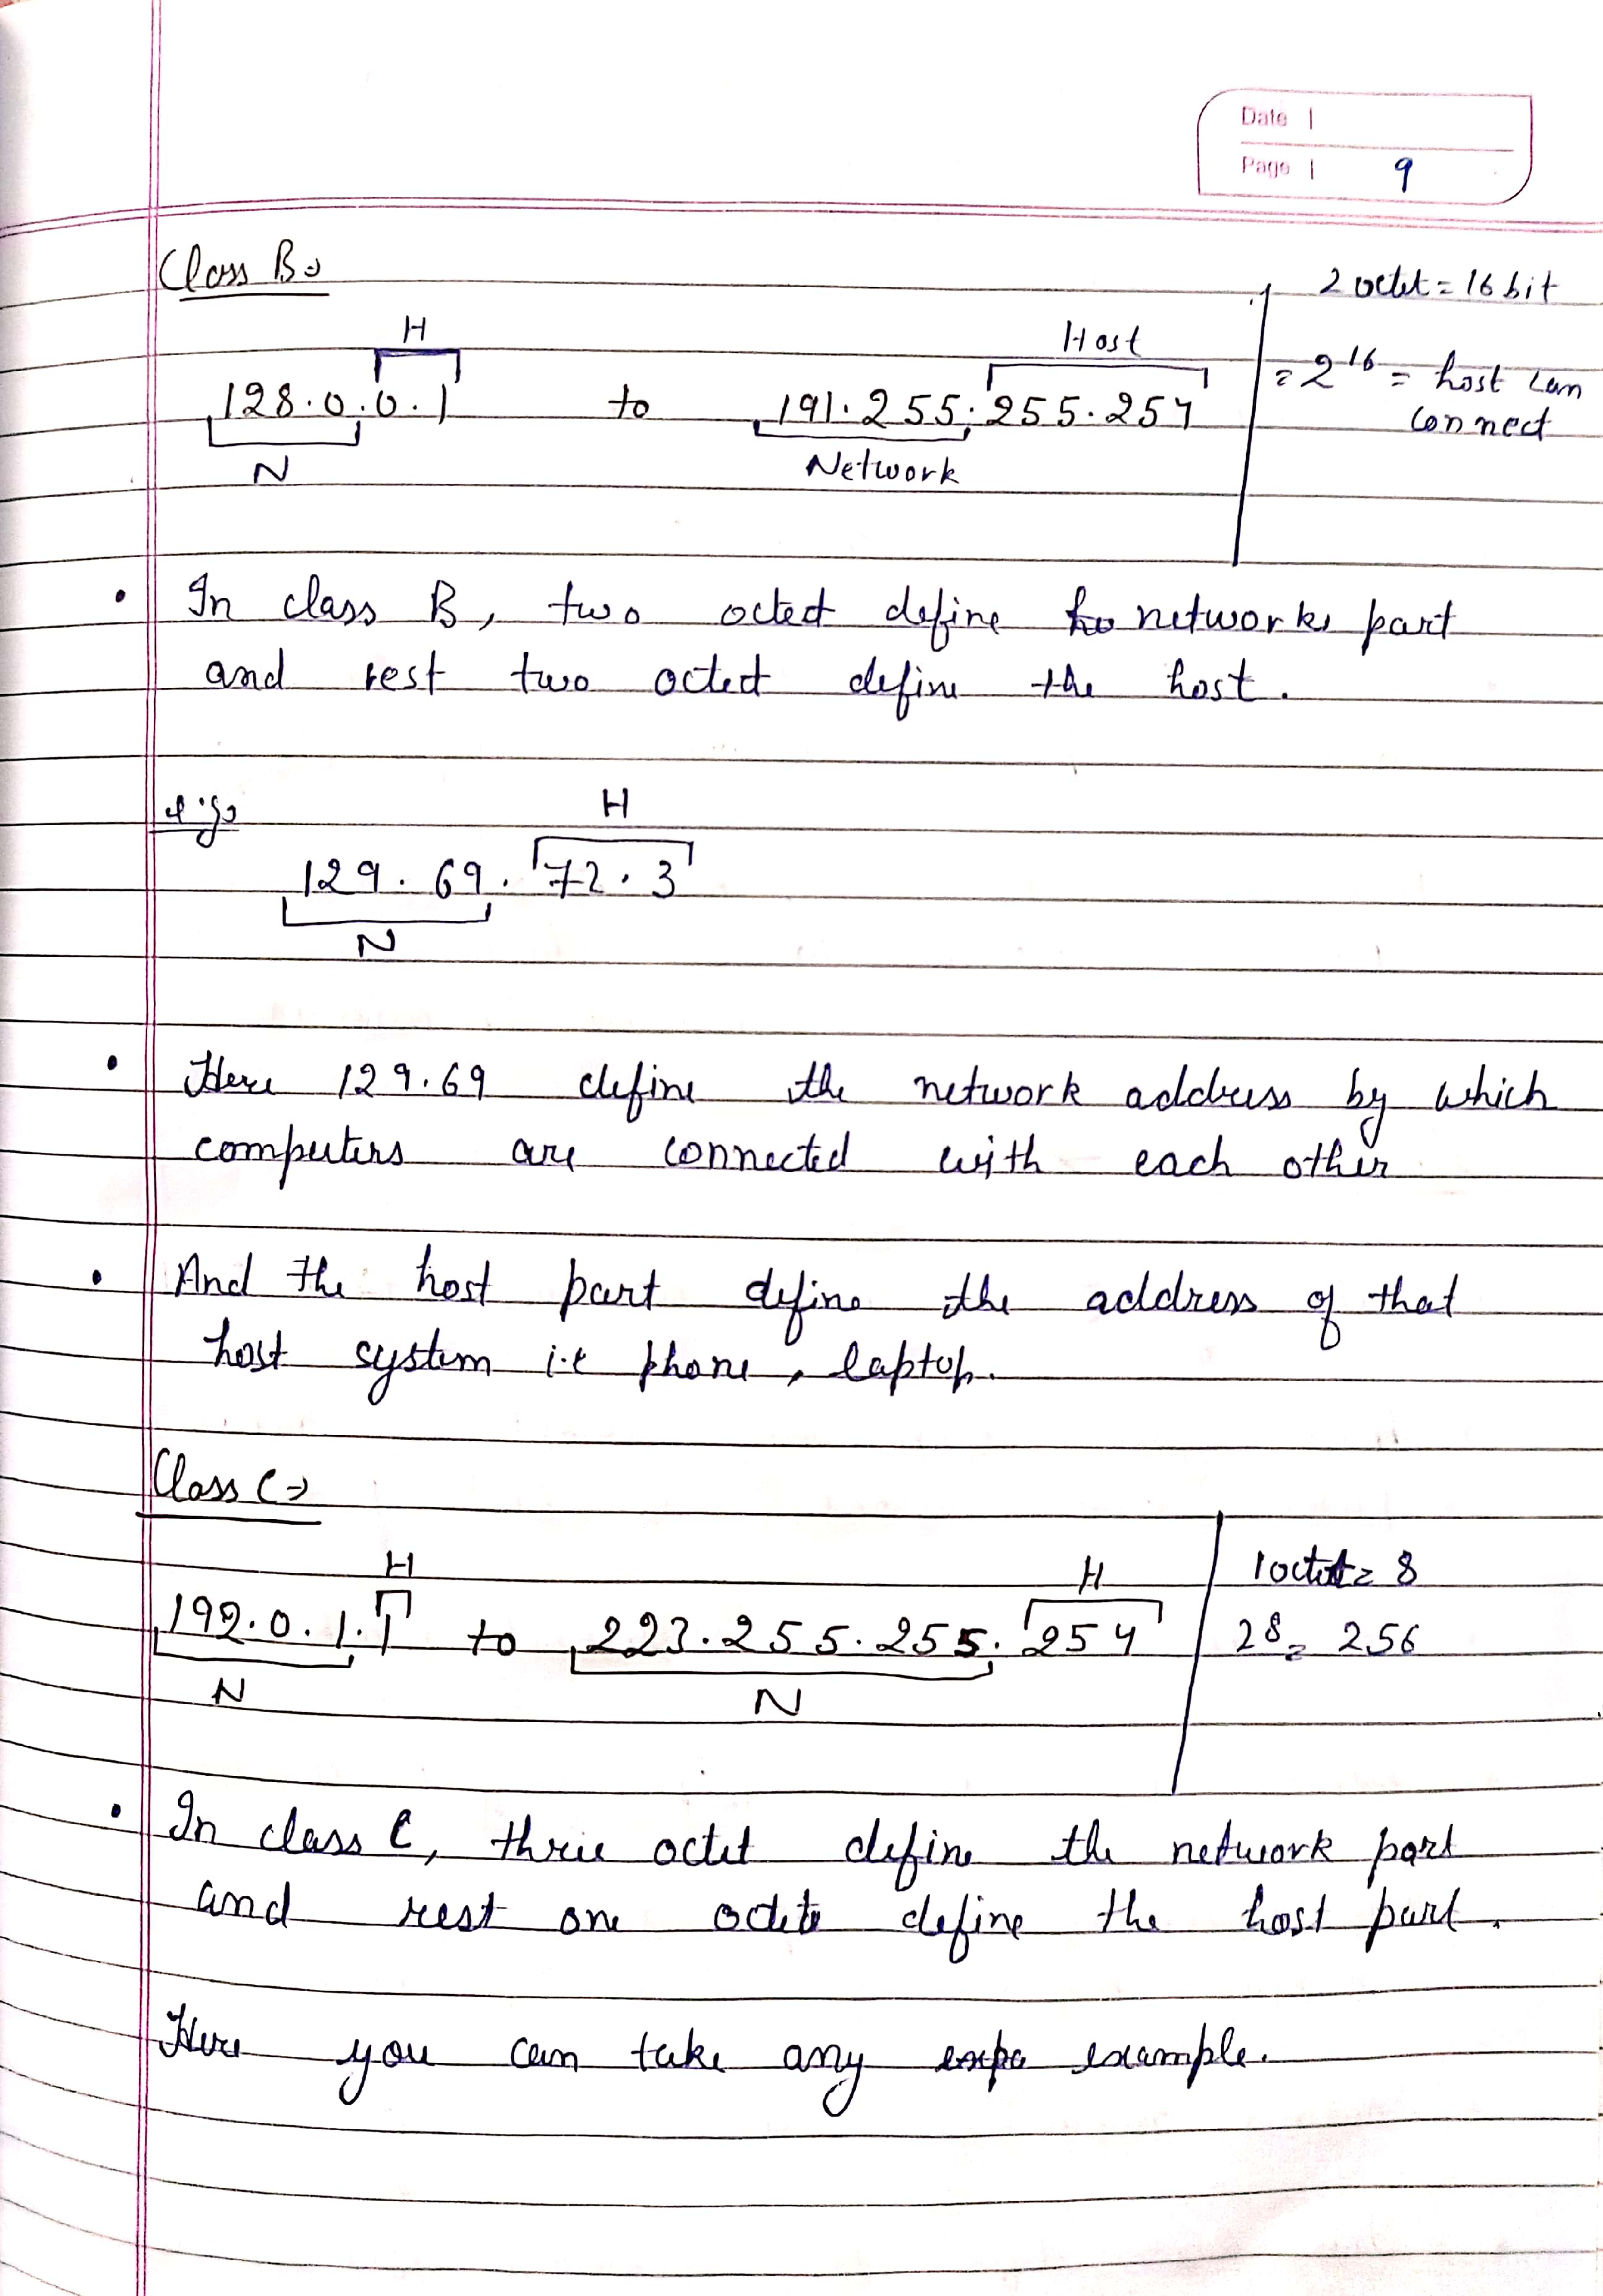 Date
Page 9
Class B⇒
2 octet = 16 bit
H
Host
= 2^16 = host can
connect
128.0.0.1 to 191.255.255.254
N
Network
• In class B, two octed define networks part
and rest two octed define the host.
e.g⇒
H
129.69.72.3
N
• Here 129.69 define the network address by which
computers are connected with each other
• And the host part define the address of that
host system i.e phone, laptop.
Class C⇒
H
H
1 octet = 8
192.0.1.1 to 223.255.255.254
2^8 = 256
N
N
• In class C, three octet define the network part
and rest one octet define the host part.
Here you can take any example.